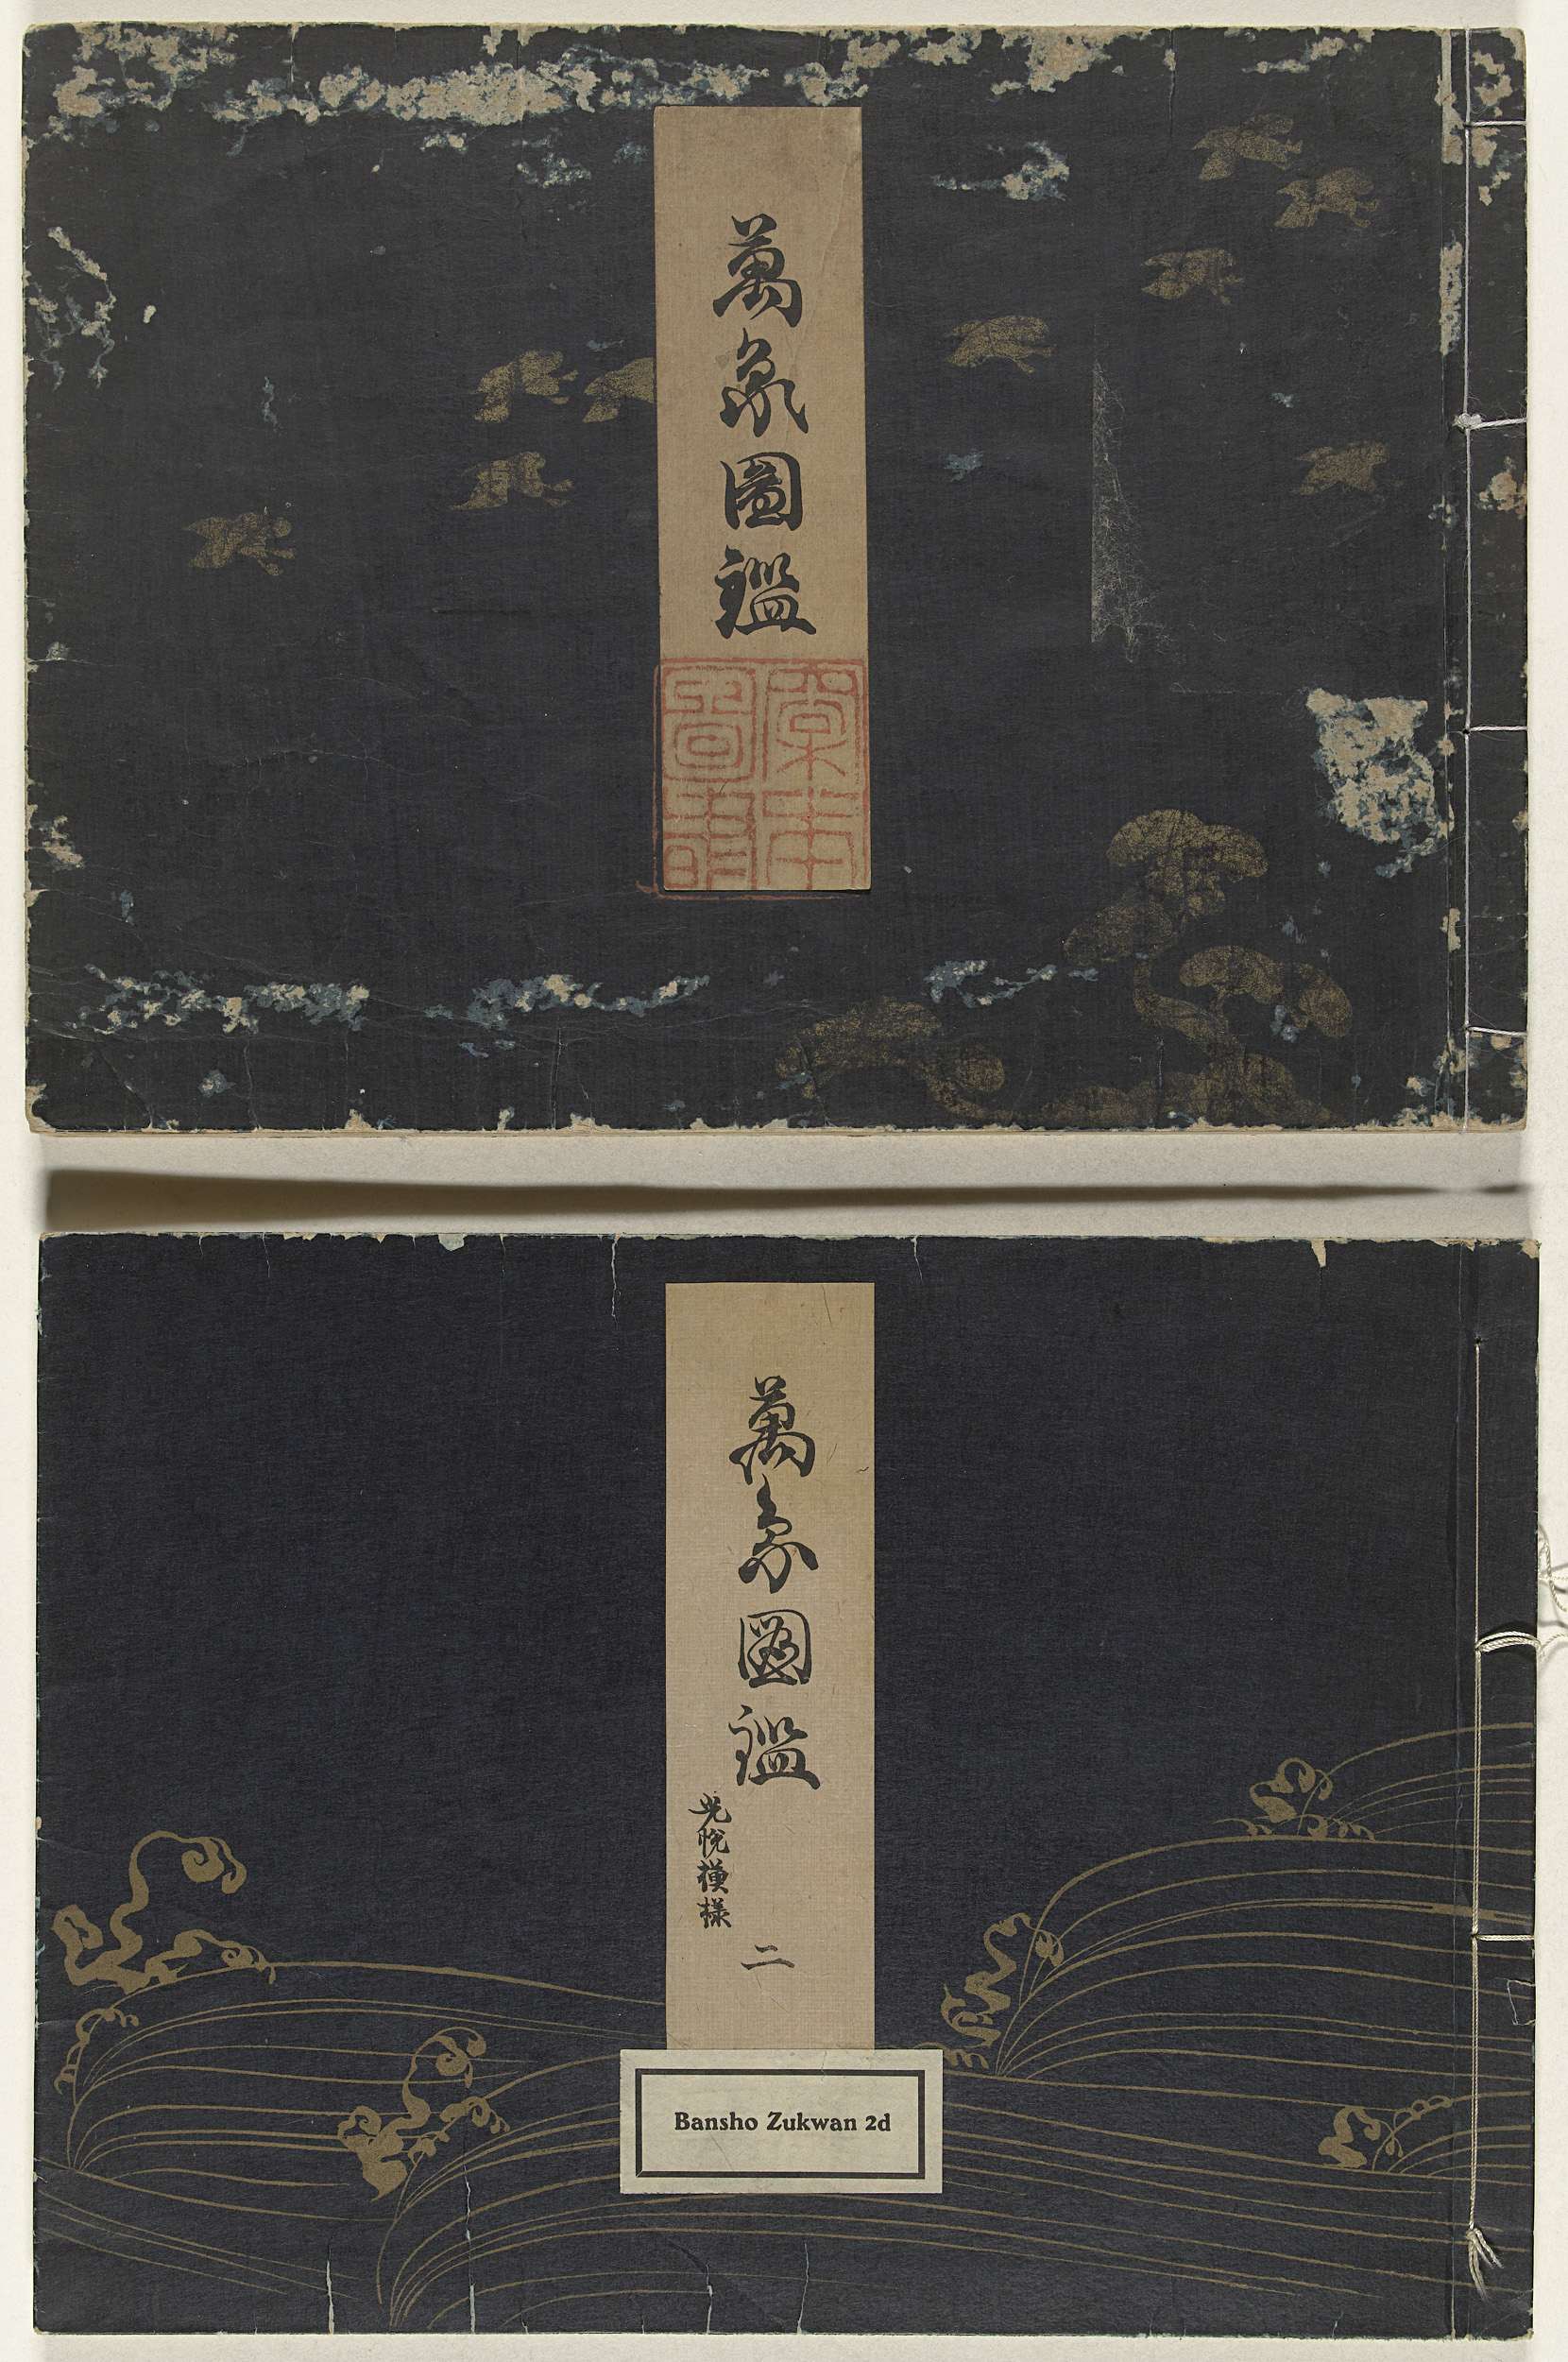 萬象圖鑑
萬象圖鑑
光悦模様
二
Bansho Zukwan 2d